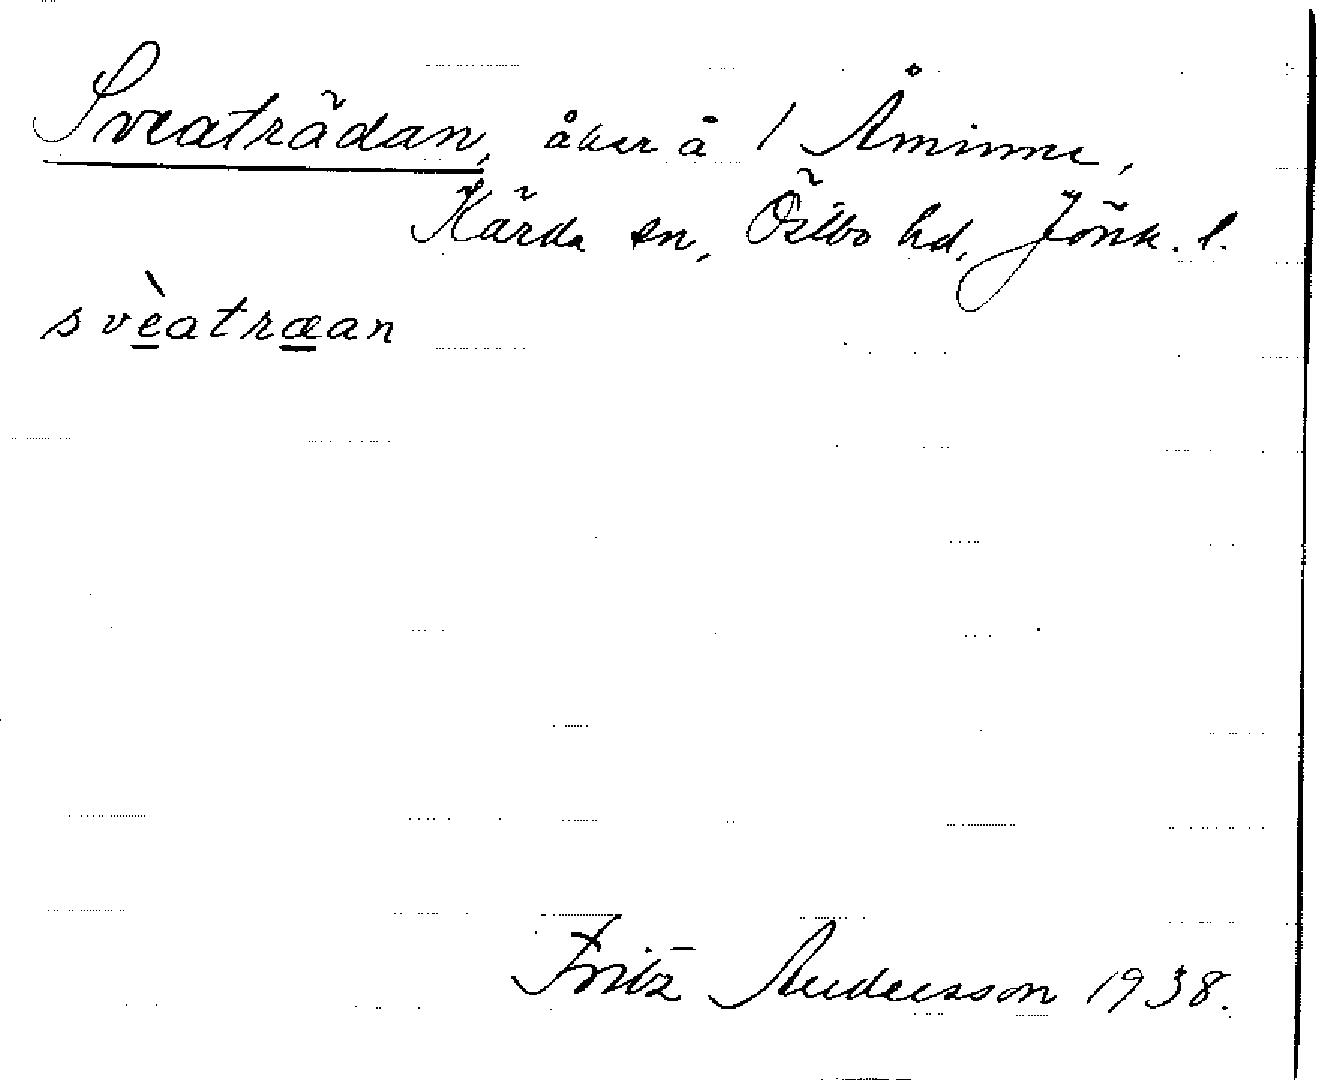 Sveaträdan, åker å 1 Åminne,
Kärda sn, Östbo hd, Jönk. l.
svèatræan
Fritz Andersson 1938.